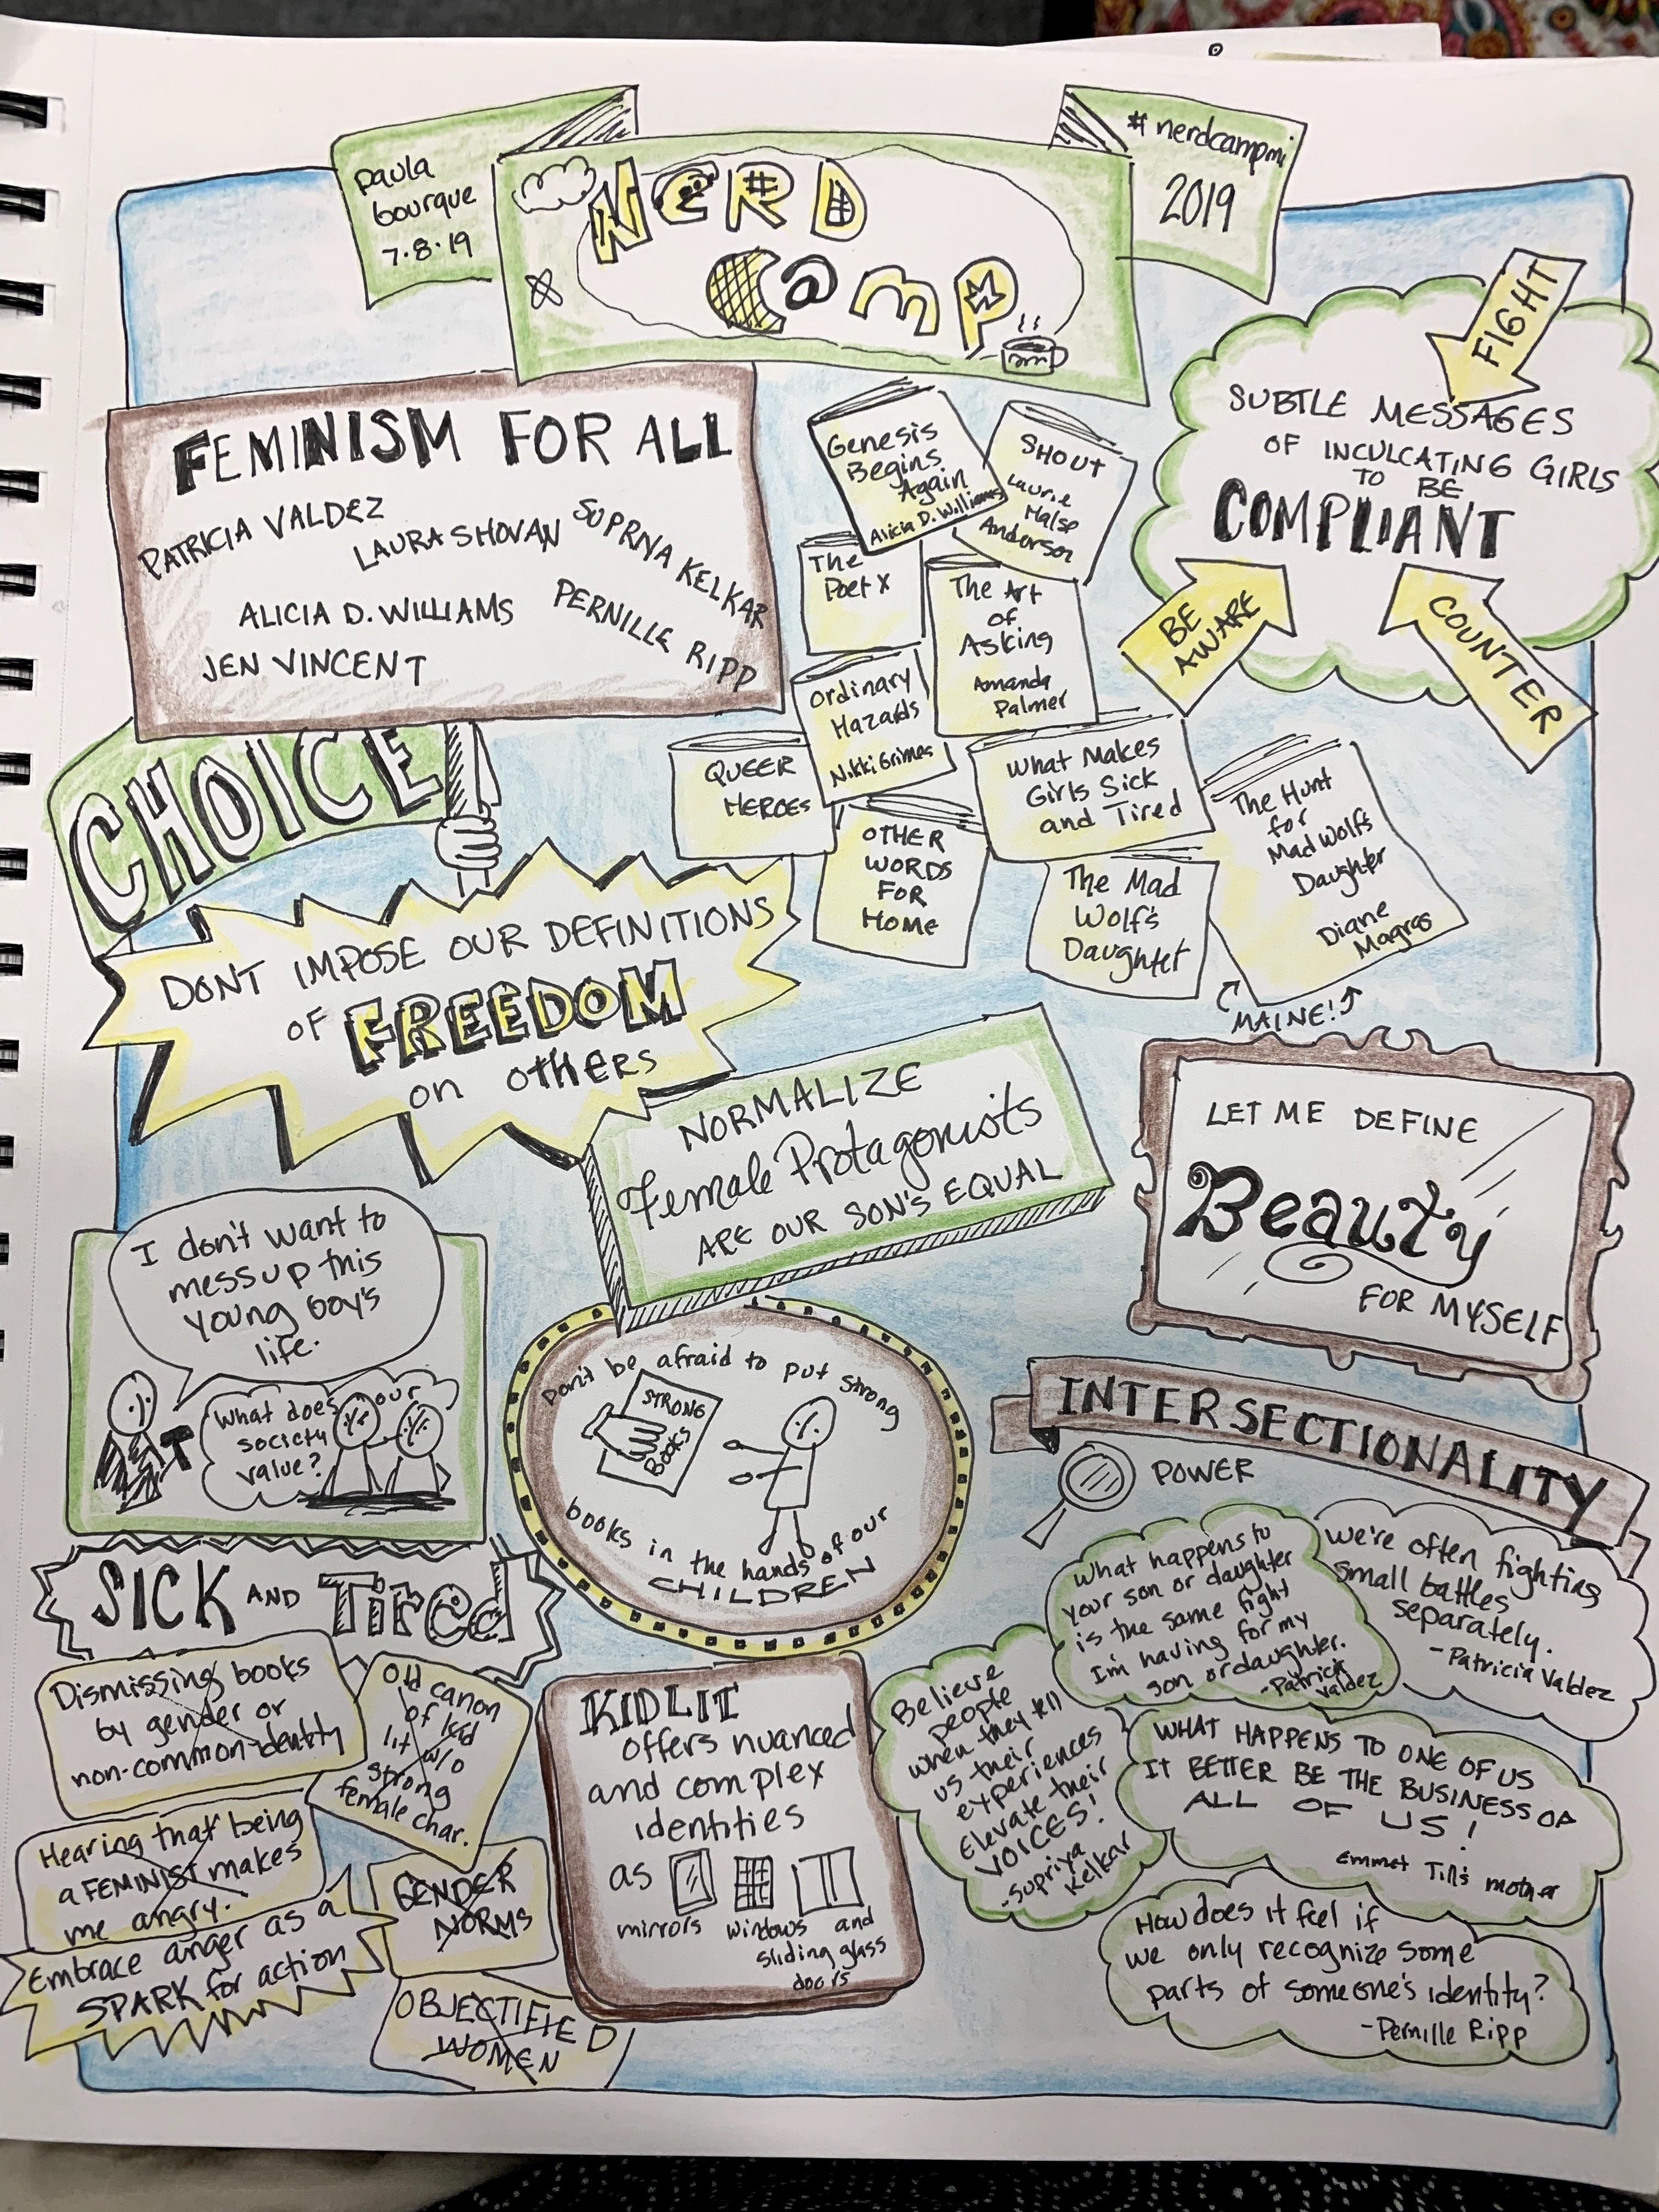 paula
bourque
7.8.19
NERD
Camp
#nerdcampmi
2019
FEMINISM FOR ALL
PATRICIA VALDEZ
LAURA SHOVAN
SUPRIYA KELKAR
ALICIA D. WILLIAMS
PERNILLE RIPP
JEN VINCENT
Genesis
Begins
Again
Alicia D. Williams
SHOUT
Laurie
Halse
Anderson
The
Poet X
The Art
of
Asking
Amanda
Palmer
Ordinary
Hazards
Nikki Grimes
QUEER
HEROES
OTHER
WORDS
FOR
HOME
What Makes
Girls Sick
and Tired
The Mad
Wolf's
Daughter
The Hunt
for
Mad Wolf's
Daughter
Diane
Magras
MAINE!
FIGHT
SUBTLE MESSAGES
OF INCULCATING GIRLS
TO BE
COMPLIANT
BE
AWARE
COUNTER
CHOICE
DONT IMPOSE OUR DEFINITIONS
OF FREEDOM
on OTHERS
NORMALIZE
Female Protagonists
ARE OUR SON'S EQUAL
LET ME DEFINE
Beauty
FOR MYSELF
I don't want to
mess up this
young boy's
life.
What does our
society
value?
Don't be afraid to put strong
STRONG
BOOKS
books in the hands of our
CHILDREN
INTERSECTIONALITY
POWER
What happens to
your son or daughter
is the same fight
I'm having for my
son or daughter.
-Patricia
Valdez
We're often fighting
small battles
separately.
-Patricia Valdez
Believe
people
when they tell
us their
experiences
Elevate their
VOICES!
-Supriya
Kelkar
WHAT HAPPENS TO ONE OF US
IT BETTER BE THE BUSINESS OF
ALL OF US!
Emmet Till's mother
How does it feel if
we only recognize some
parts of someone's identity?
-Pernille Ripp
SICK AND Tired
Dismissing books
by gender or
non-common identity
Old canon
of
lit w/o
strong
female char.
Hearing that being
a FEMINIST makes
me angry.
Embrace anger as a
SPARK for action
GENDER
NORMS
OBJECTIFIED
WOMEN
KIDLIT
offers nuanced
and complex
identities
as
mirrors windows and
sliding glass
doors